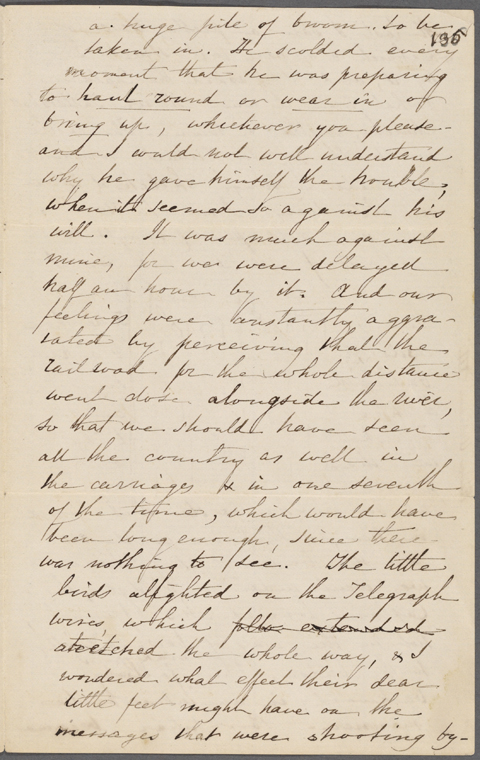 a huge pile of broom to be
195
taken in. He scolded every
moment that he was preparing
to haul round or wear in or
bring up, whichever you please -
and I could not well understand
why he gave himself the trouble,
when it seemed so against his
will. It was much against
mine, for we were delayed
half an hour by it. And our
feelings were constantly aggra-
vated by perceiving that the
railroad for the whole distance
went close alongside the river,
so that we should have seen
all the country as well in
the carriages & in one seventh
of the time, which would have
been long enough, since there
was nothing to see. The little
birds alighted on the Telegraph
wires, which extended
stretched the whole way, & I
wondered what effect their dear
little feet might have on the
messages that were shooting by -